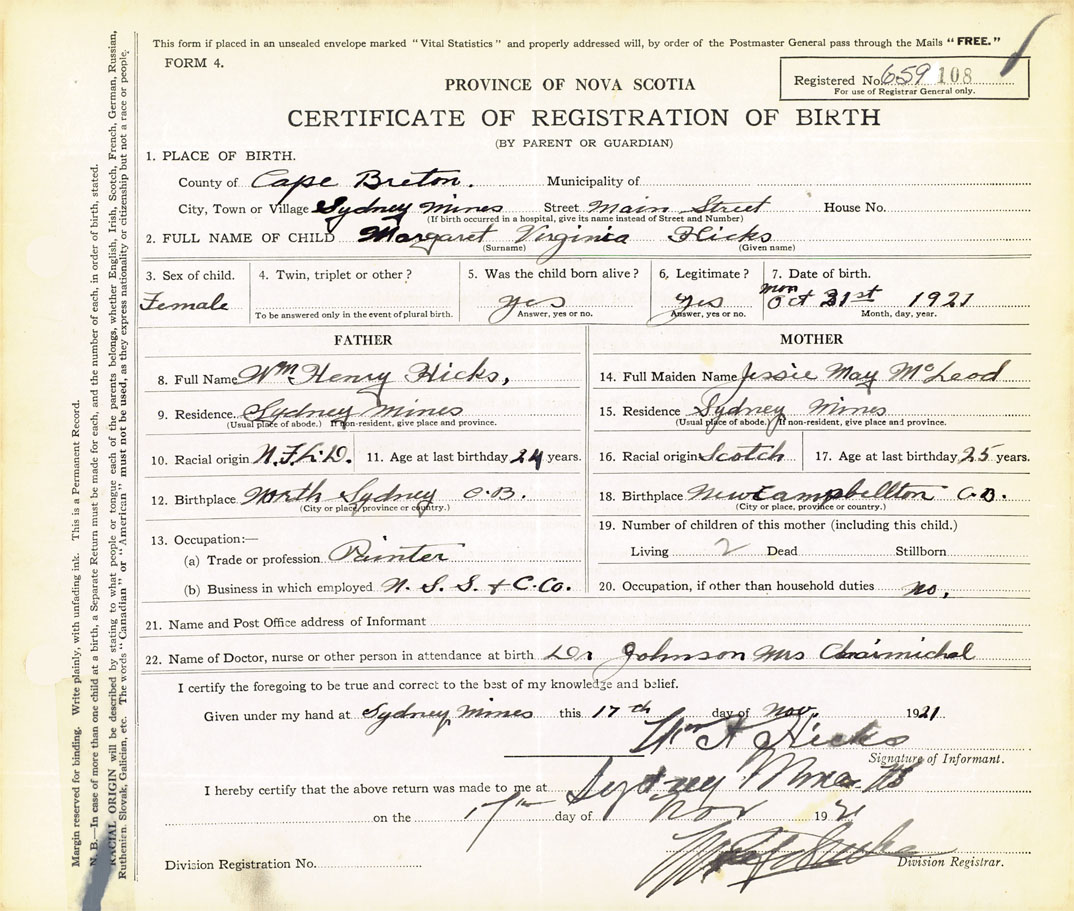 This form if placed in an unsealed envelope marked "Vital Statistics" and properly addressed will, by order of the Postmaster General pass through the Mails "FREE."
FORM 4.
Registered No. 659 108
For use of Registrar General only.
PROVINCE OF NOVA SCOTIA
CERTIFICATE OF REGISTRATION OF BIRTH
(BY PARENT OR GUARDIAN)
1. PLACE OF BIRTH.
County of Cape Breton. Municipality of
City, Town or Village Sydney Mines Street Main Street House No.
(If birth occurred in a hospital, give its name instead of Street and Number)
2. FULL NAME OF CHILD Margaret Virginia Hicks
(Surname) (Given name)
3. Sex of child. 4. Twin, triplet or other? 5. Was the child born alive? 6. Legitimate? 7. Date of birth.
Female yes yes mon Oct 31st 1921
To be answered only in the event of plural birth. Answer, yes or no. Answer, yes or no. Month, day, year.
FATHER MOTHER
8. Full Name Wm Henry Hicks, 14. Full Maiden Name Jessie May McLeod
9. Residence. Sydney Mines 15. Residence Sydney Mines
(Usual place of abode.) If non-resident, give place and province. (Usual place of abode.) If non-resident, give place and province.
10. Racial origin N.F.L.D. 11. Age at last birthday 24 years. 16. Racial origin Scotch 17. Age at last birthday 25 years.
12. Birthplace North Sydney C.B. 18. Birthplace New Campbellton C.B.
(City or place, province or country.) (City or place, province or country.)
13. Occupation:— 19. Number of children of this mother (including this child.)
(a) Trade or profession Painter Living 2 Dead Stillborn
(b) Business in which employed N.S.S. & C.Co. 20. Occupation, if other than household duties no,
21. Name and Post Office address of Informant
22. Name of Doctor, nurse or other person in attendance at birth Dr Johnson Mrs
I certify the foregoing to be true and correct to the best of my knowledge and belief.
Given under my hand at Sydney Mines this 17th day of Nov. 1921
Wm H Hicks
Signature of Informant.
I hereby certify that the above return was made to me at Sydney Mines
on the 17th day of Nov 1921
Division Registrar.
Division Registration No.
Margin reserved for binding. Write plainly, with unfading ink. This is a Permanent Record.
N. B.—In case of more than one child at a birth, a Separate Return must be made for each, and the number of each, in order of birth, stated.
RACIAL ORIGIN will be described by stating to what people or tongue each of the parents belongs, whether English, Irish, Scotch, French, German, Russian,
Ruthenien, Slovak, Galician, etc. The words "Canadian" or "American" must not be used, as they express nationality or citizenship but not a race or people.